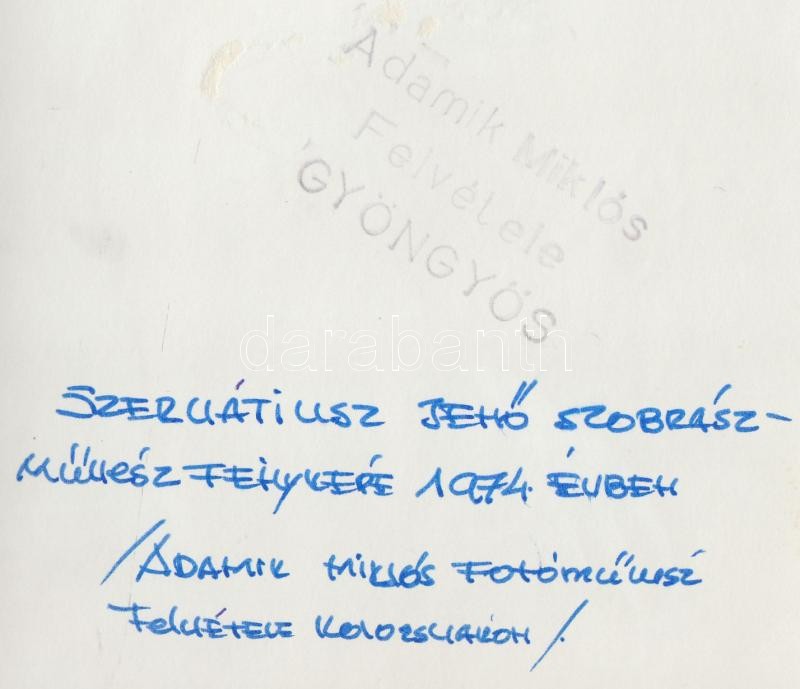 Adamik Miklós
Felvétele
GYÖNGYÖS
darabanth
SZERVÁTIUSZ JENŐ SZOBRÁSZ-
MŰVÉSZ FÉNYKÉPE 1974. ÉVBEN
/ADAMIK MIKLÓS FOTÓMŰVÉSZ
FELVÉTELE KOLOZSVÁRON/.